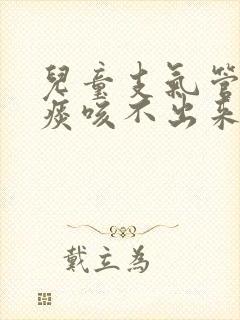 兒童支氣管
痰咳不出來
戴立為